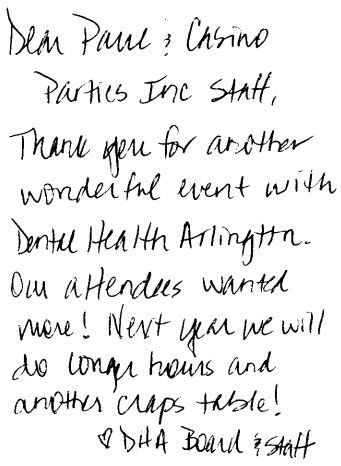 Dear Paul & Casino
Parties Inc Staff,
Thank you for another
wonderful event with
Dental Health Arlington.
Our attendees wanted
more! Next year we will
do longer hours and
another craps table!
♡ DHA Board & Staff